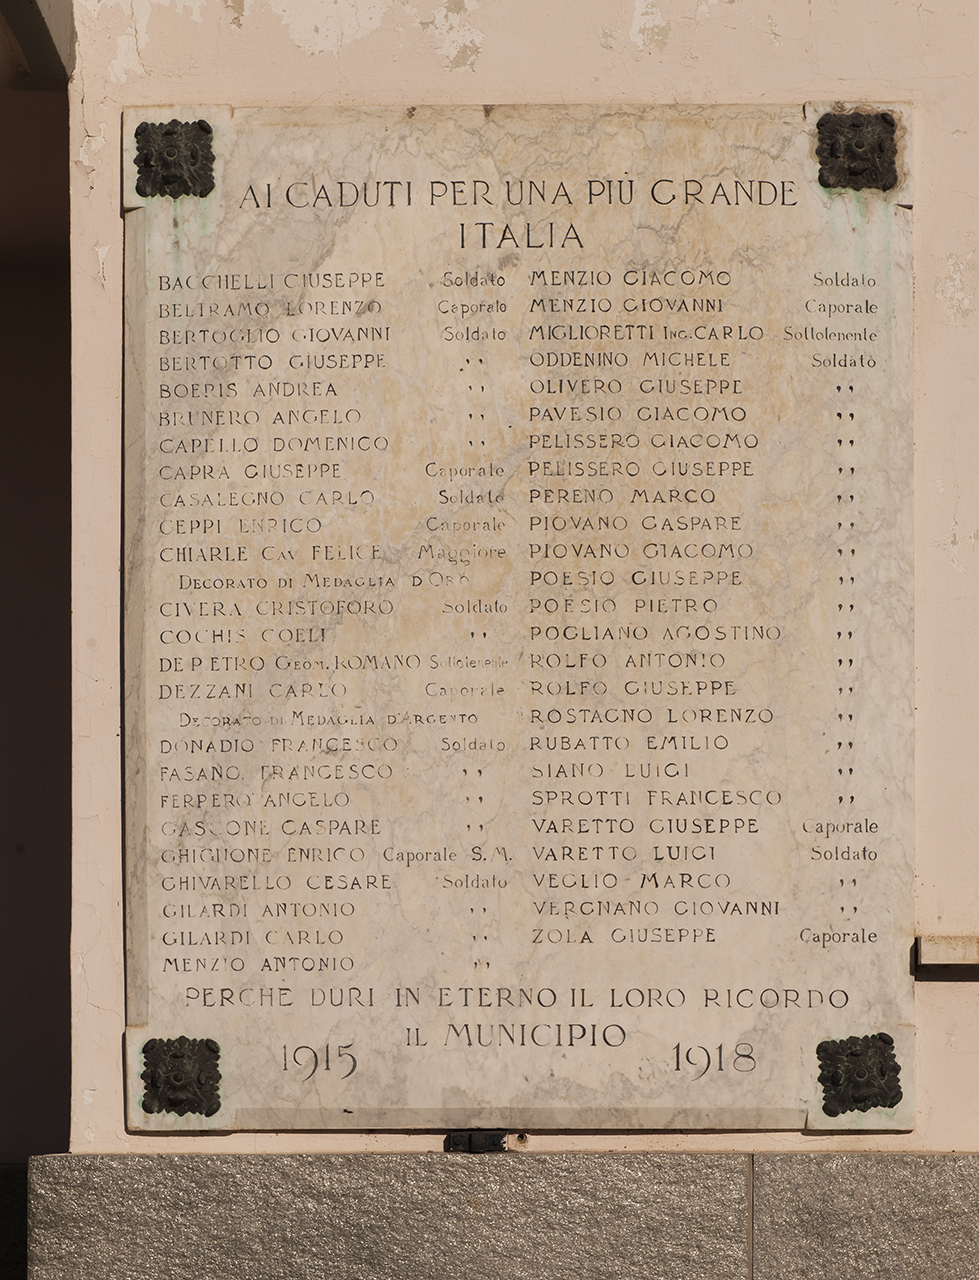 AI CADUTI PER UNA PIÙ GRANDE
ITALIA
BACCHELLI GIUSEPPE Soldato
BELTRAMO LORENZO Caporale
BERTOGLIO GIOVANNI Soldato
BERTOTTO GIUSEPPE ,,
BOERIS ANDREA ,,
BRUNERO ANGELO ,,
CAPELLO DOMENICO ,,
CAPRA GIUSEPPE Caporale
CASALEGNO CARLO Soldato
CEPPI ENRICO Caporale
CHIARLE CAV FELICE Maggiore
DECORATO DI MEDAGLIA D'ORO
CIVERA CRISTOFORO Soldato
COCHIS COELI ,,
DE PIETRO GEOM. ROMANO Sottotenente
DEZZANI CARLO Caporale
DECORATO DI MEDAGLIA D'ARGENTO
DONADIO FRANCESCO Soldato
FASANO FRANCESCO ,,
FERPERO ANGELO ,,
GASCONE GASPARE ,,
GHIGLIONE ENRICO Caporale S.M.
GHIVARELLO CESARE Soldato
GILARDI ANTONIO ,,
GILARDI CARLO ,,
MENZIO ANTONIO ,,
MENZIO GIACOMO Soldato
MENZIO GIOVANNI Caporale
MIGLIORETTI ING. CARLO Sottotenente
ODDENINO MICHELE Soldato
OLIVERO GIUSEPPE ,,
PAVESIO GIACOMO ,,
PELISSERO GIACOMO ,,
PELISSERO GIUSEPPE ,,
PERENO MARCO ,,
PIOVANO GASPARE ,,
PIOVANO GIACOMO ,,
POESIO GIUSEPPE ,,
POESIO PIETRO ,,
POGLIANO AGOSTINO ,,
ROLFO ANTONIO ,,
ROLFO GIUSEPPE ,,
ROSTAGNO LORENZO ,,
RUBATTO EMILIO ,,
SIANO LUIGI ,,
SPROTTI FRANCESCO ,,
VARETTO GIUSEPPE Caporale
VARETTO LUIGI Soldato
VEGLIO MARCO ,,
VERGNANO GIOVANNI ,,
ZOLA GIUSEPPE Caporale
PERCHÈ DURI IN ETERNO IL LORO RICORDO
IL MUNICIPIO
1915 1918